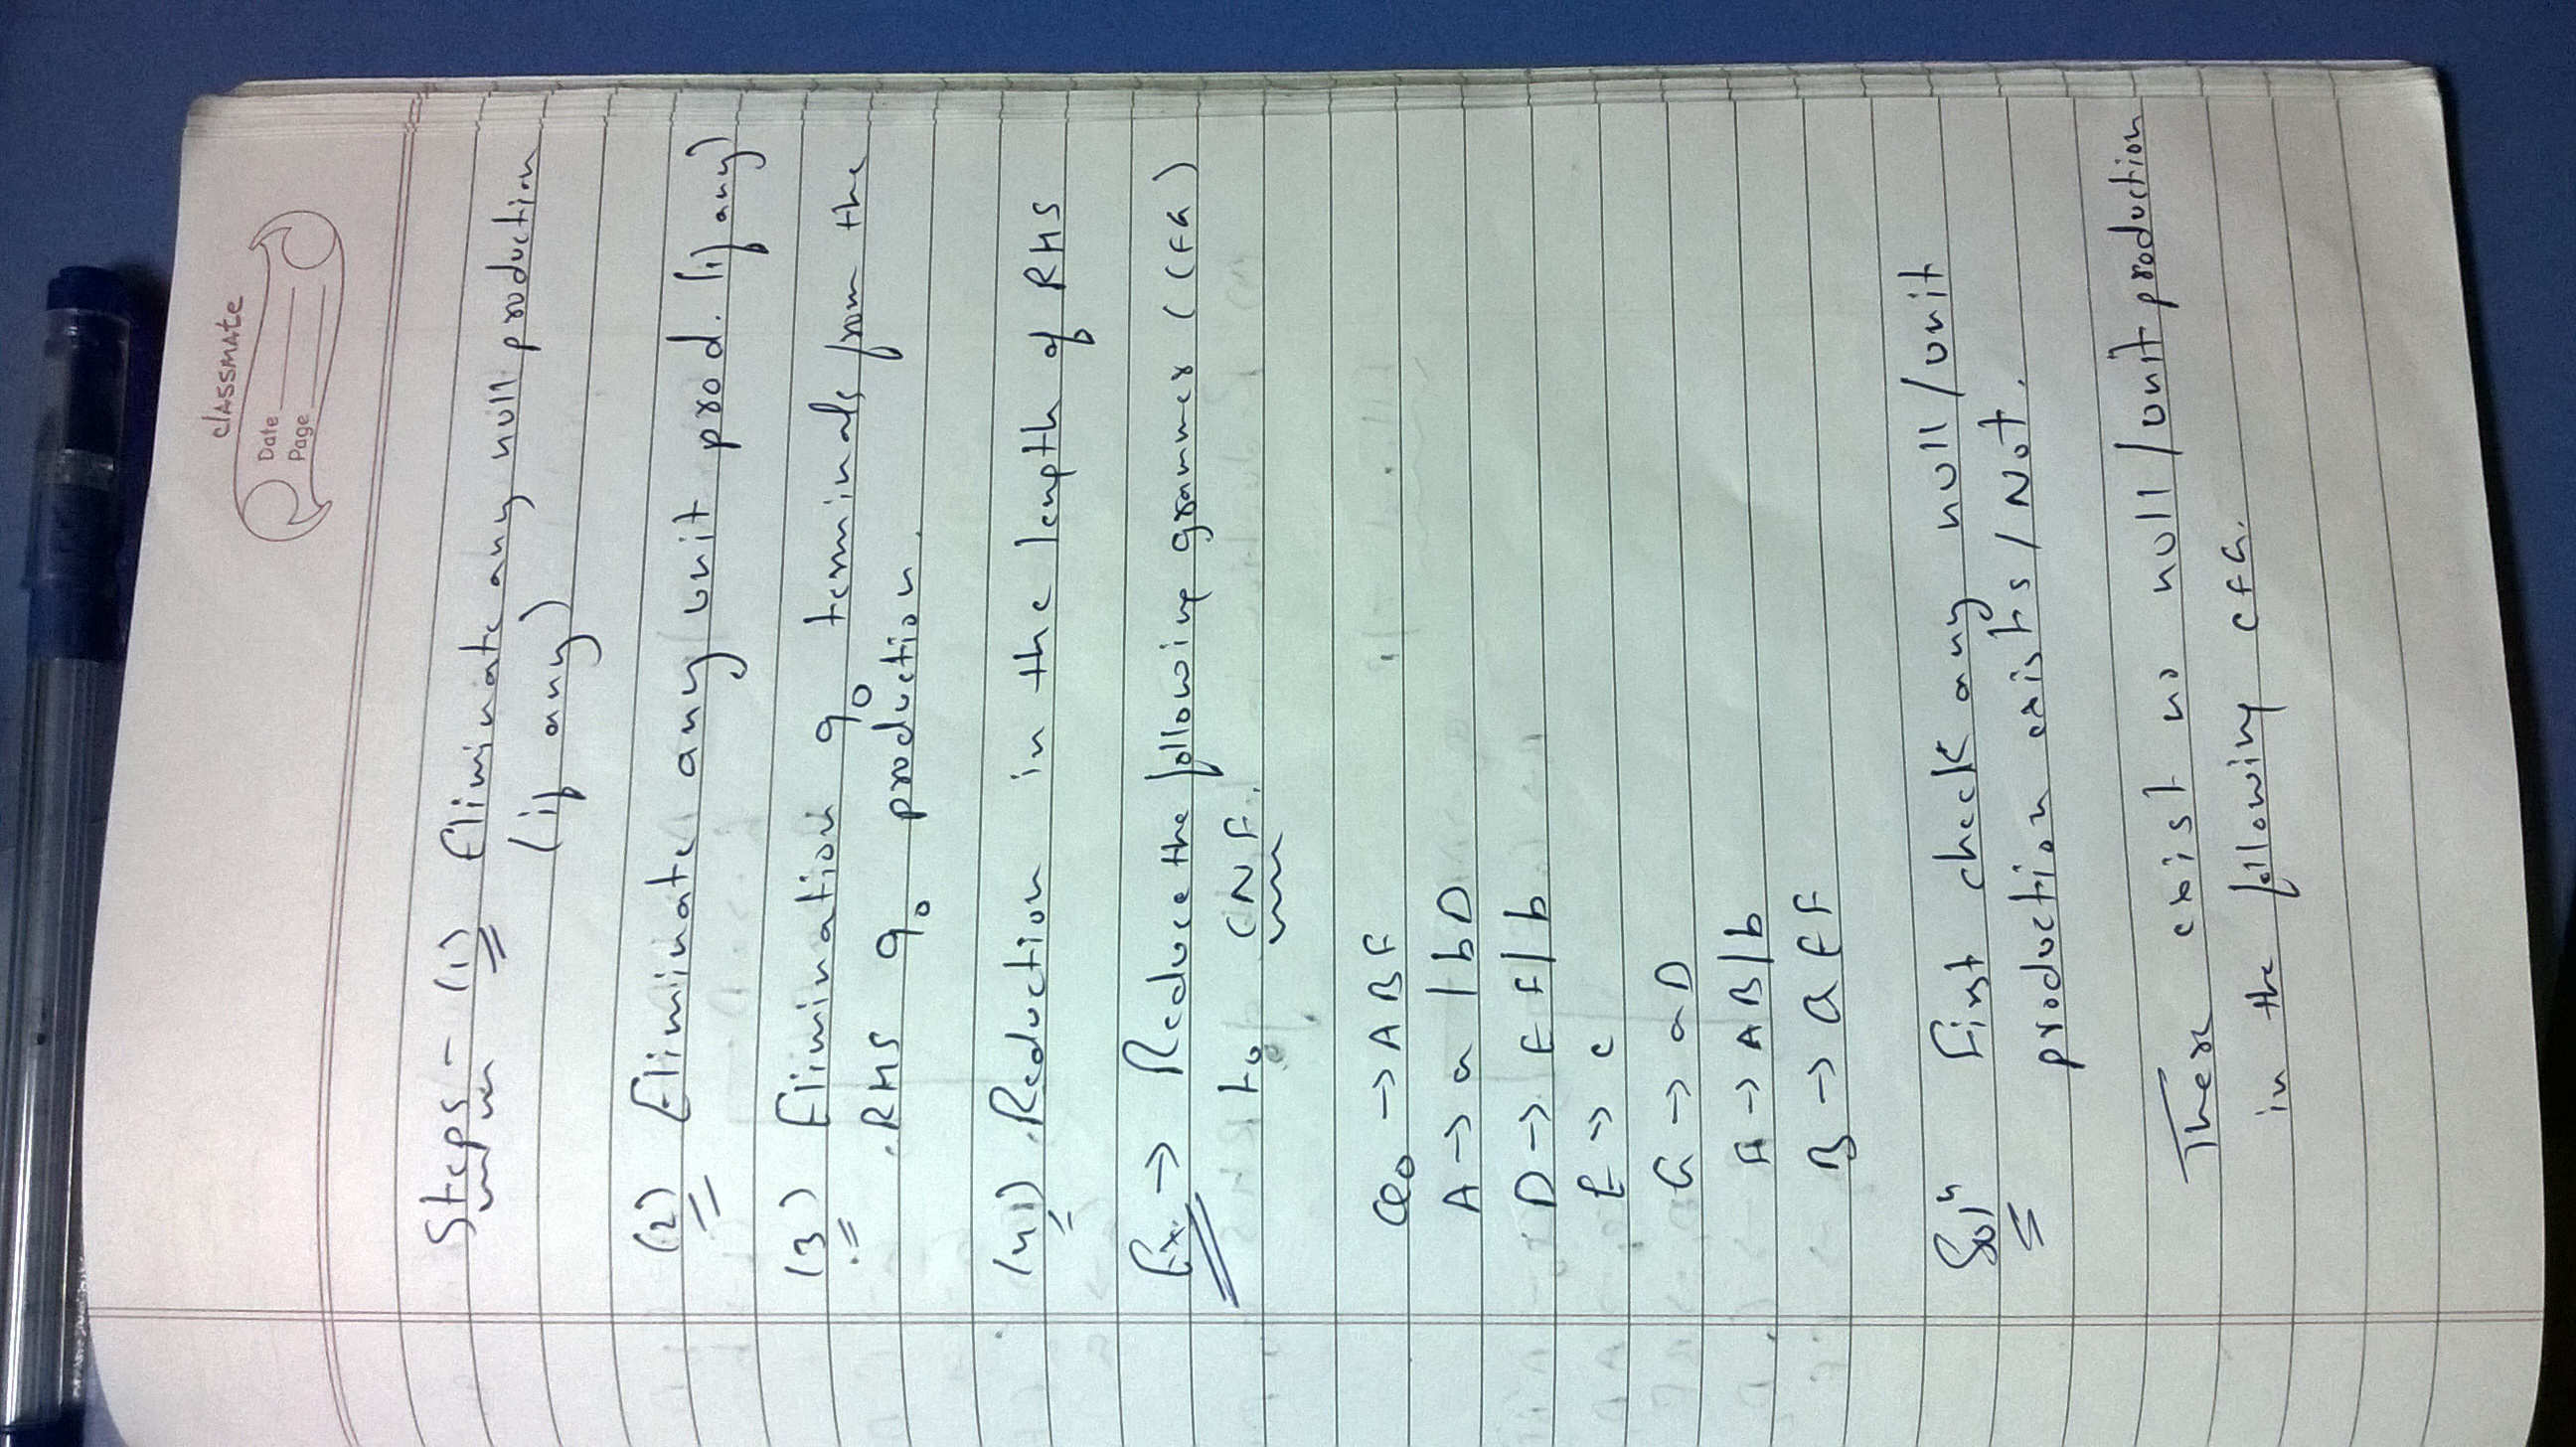 classmate
Date
Page
Steps - (1) Eliminate any null production
(if any)
(2) Eliminate any unit prod. (if any)
(3) Elimination of terminals from the
RHS of production.
(4) Reduction in the length of RHS
Ex. → Reduce the following grammer (CFG)
to CNF.
→ ABF
A → a | bD
D → EF | b
E → c
G → aD
A → AB | b
B → aEF
Solⁿ First check any null/unit
production exists / Not.
There exist no null/unit production
in the following CFG.